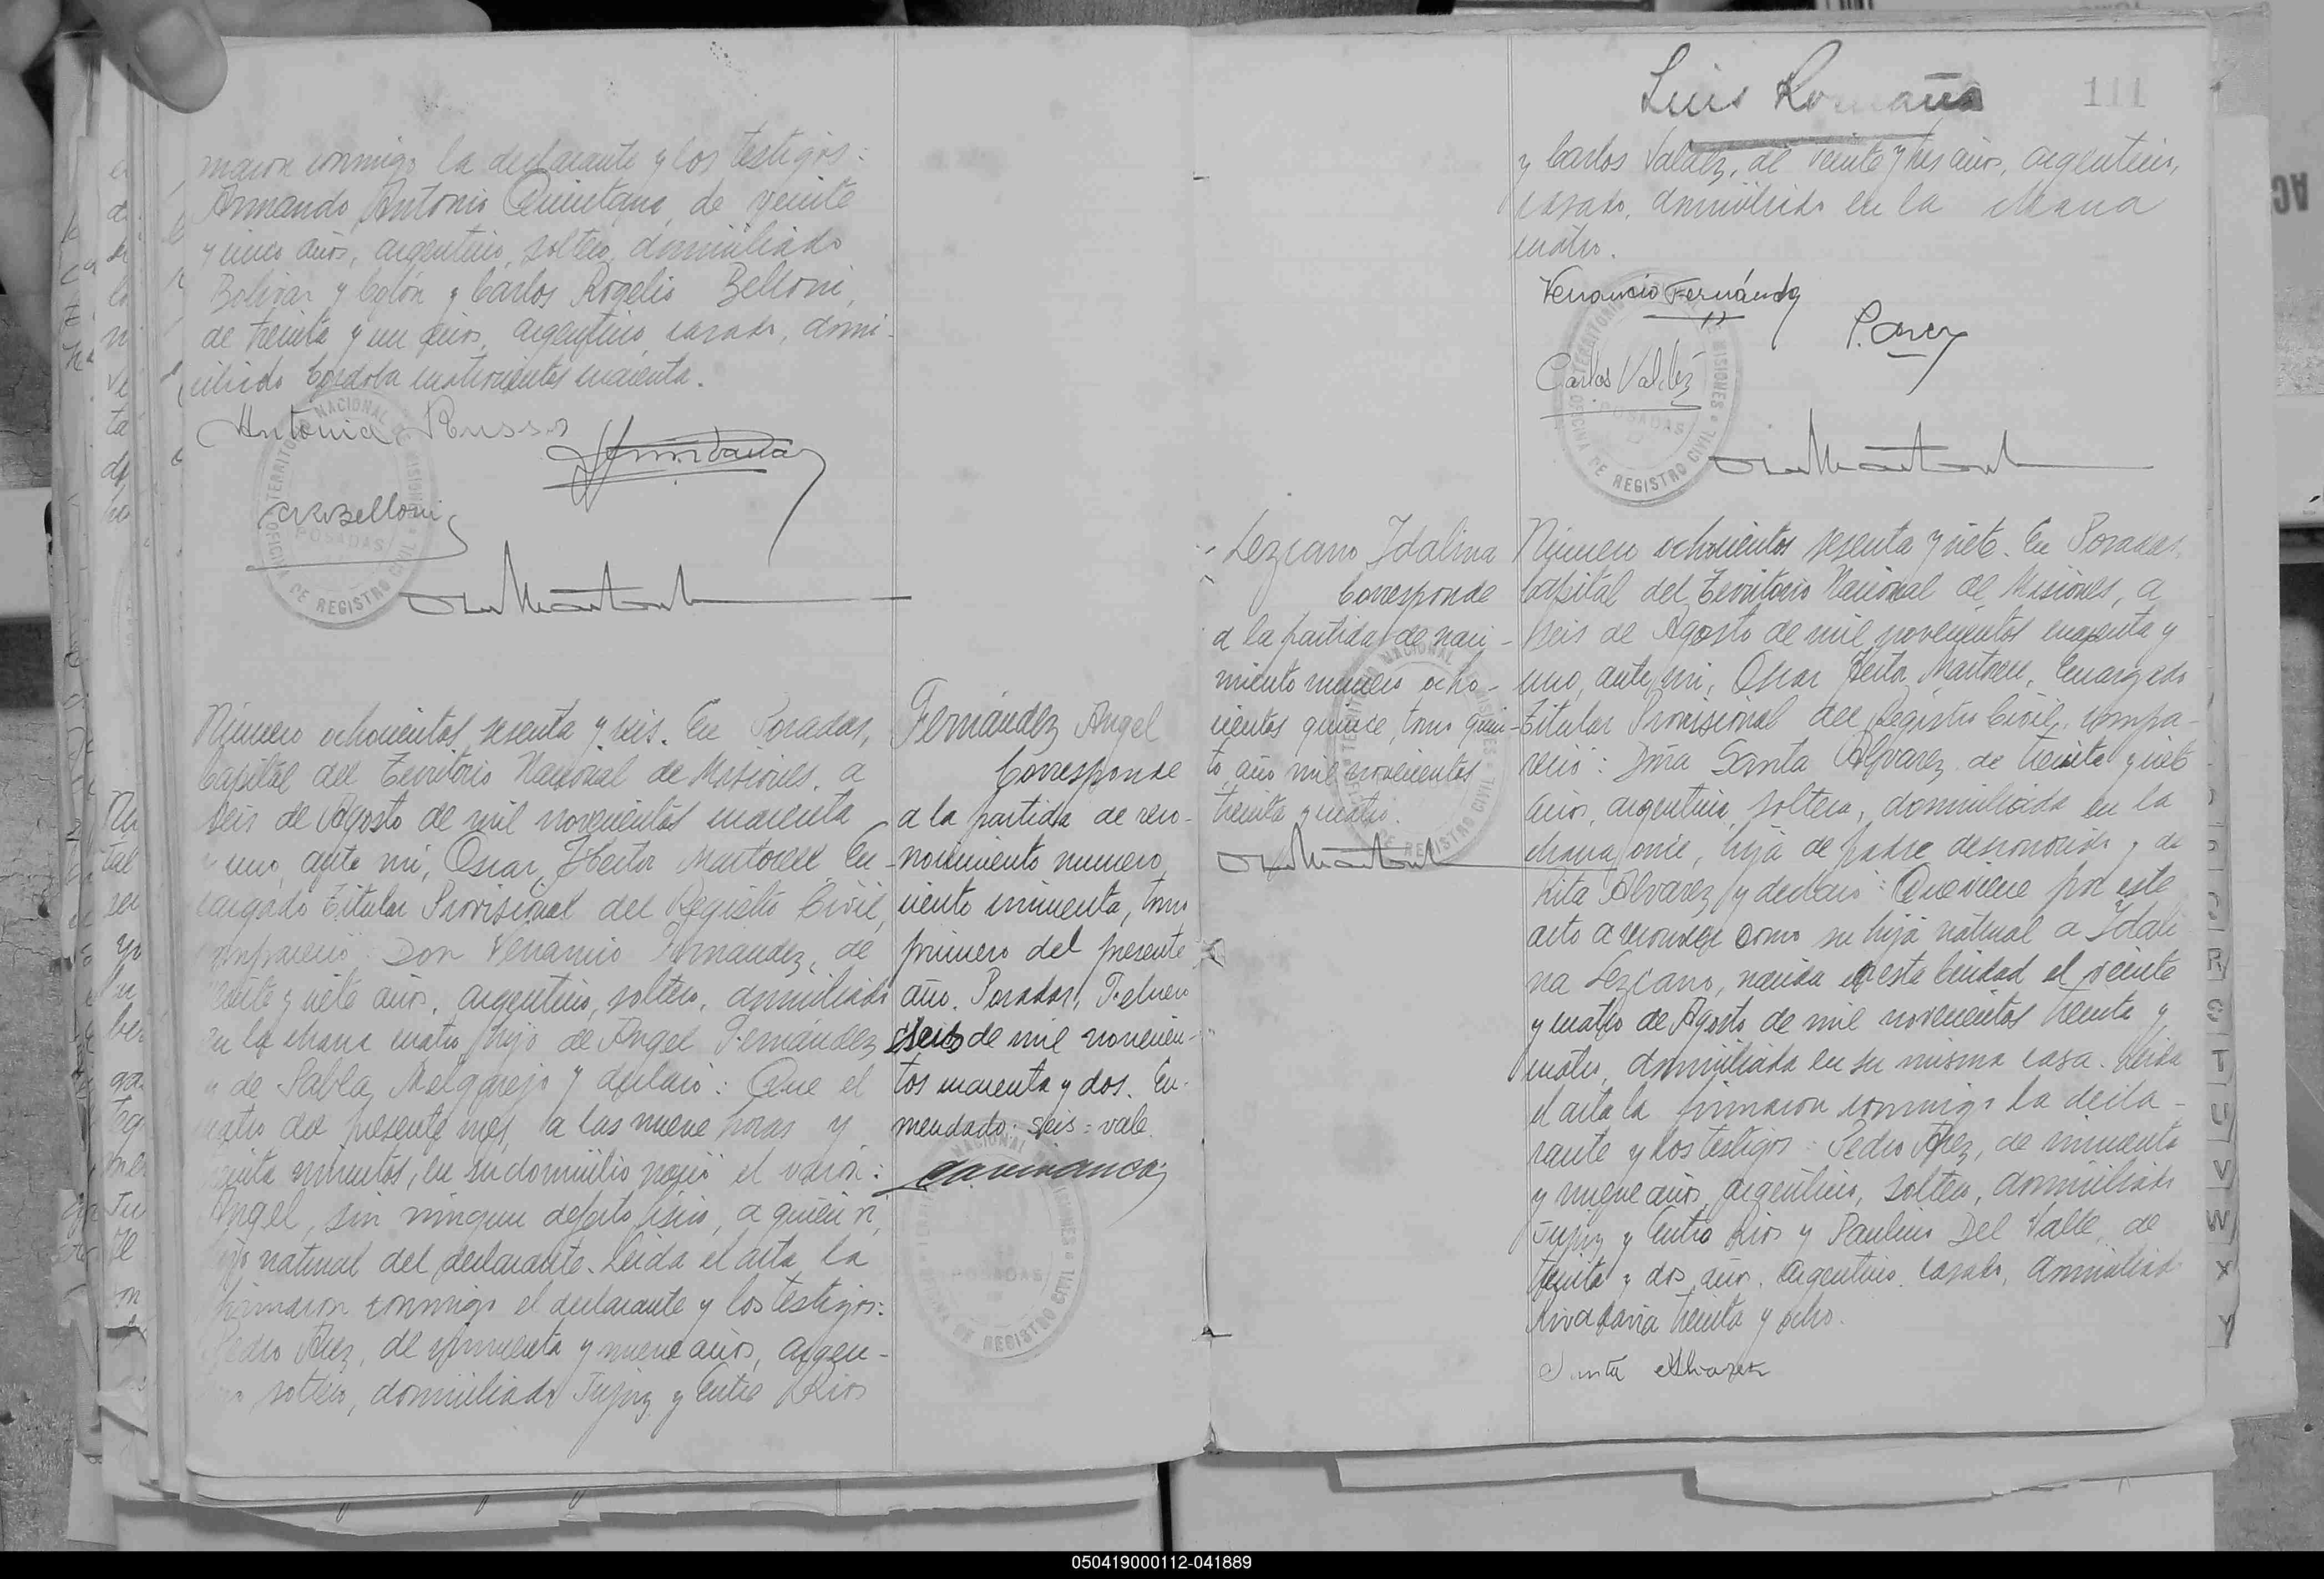 maron conmigo la declarante y los testigos:
Armando Antonio Quintana, de veinte
y cinco años, argentino, soltero, domiciliado
Bolivar y Colón y Carlos Rogelio Belloni,
de treinta y un años, argentino, casado, domi-
ciliado Córdoba cuatrocientos cuarenta.
Antonia Russo
CRBelloni
TERRITORIO NACIONAL DE MISIONES
POSADAS
OFICINA DE REGISTRO CIVIL
Número ochocientos sesenta y seis. En Posadas,
Capital del Territorio Nacional de Misiones, a
seis de Agosto de mil novecientos cuarenta
y uno, ante mi, Oscar Héctor Martorell, En-
cargado Titular Provisional del Registro Civil,
compareció: Don Venancio Fernández, de
veinte y siete años, argentino, soltero, domiciliado
en la chacra cuatro, hijo de Angel Fernández
y de Pabla Melgarejo y declaró: Que el
cuatro del presente mes, a las nueve horas y
treinta minutos, en su domicilio nació el varón:
Angel, sin ningun defecto fisico, a quién
hijo natural del declarante. Leida el acta la
firmaron conmigo el declarante y los testigos:
Pedro Arez, de cincuenta y nueve años, argen-
tino soltero, domiciliado Jujuy y Entre Rios
Fernández Angel
Corresponde
a la partida de reco-
nocimiento numero
ciento cincuenta, tomo
primero del presente
año. Posadas, Febrero
seis de mil novecien-
tos cuarenta y dos. En-
mendado: seis = vale.
POSADAS
Luis Romaña
111
y Carlos Valdez, de veinte y tres años, argentino,
casado, domiciliado en la chacra
cuatro.
Venancio Fernández
P. Arez
Carlos Valdéz
TERRITORIO NACIONAL DE MISIONES
POSADAS
OFICINA DE REGISTRO CIVIL
Lezcano Idalina
Corresponde
a la partida de naci-
miento numero ocho-
cientos quince, tomo quin-
to año mil novecientos
treinta y cuatro.
Número ochocientos sesenta y siete. En Posadas,
Capital del Territorio Nacional de Misiones, a
seis de Agosto de mil novecientos cuarenta y
uno, ante mi, Oscar Héctor Martorell, Encargado
Titular Provisional del Registro Civil, compa-
reció: Dña Santa Alvarez de treinta y siete
años, argentina, soltera, domiciliada en la
chacra once, hija de padre desconocido y de
Rita Alvarez y declaró: Que viene por este
acto a reconocer como su hija natural a Idali
na Lezcano, nacida en esta Ciudad el veinte
y cuatro de Agosto de mil novecientos treinta y
cuatro, domiciliada en su misma casa. Leida
el acta la firmaron conmigo la decla-
rante y los testigos: Pedro Arez, de cincuenta
y nueve años, argentino, soltero, domiciliado
Jujuy y Entre Rios y Paulino Del Valle, de
treinta y dos años, argentino, casado, domiciliado
Rivadavia treinta y ocho.
Santa Alvarez
R
S
T
U
V
W
X
Y
050419000112-041889